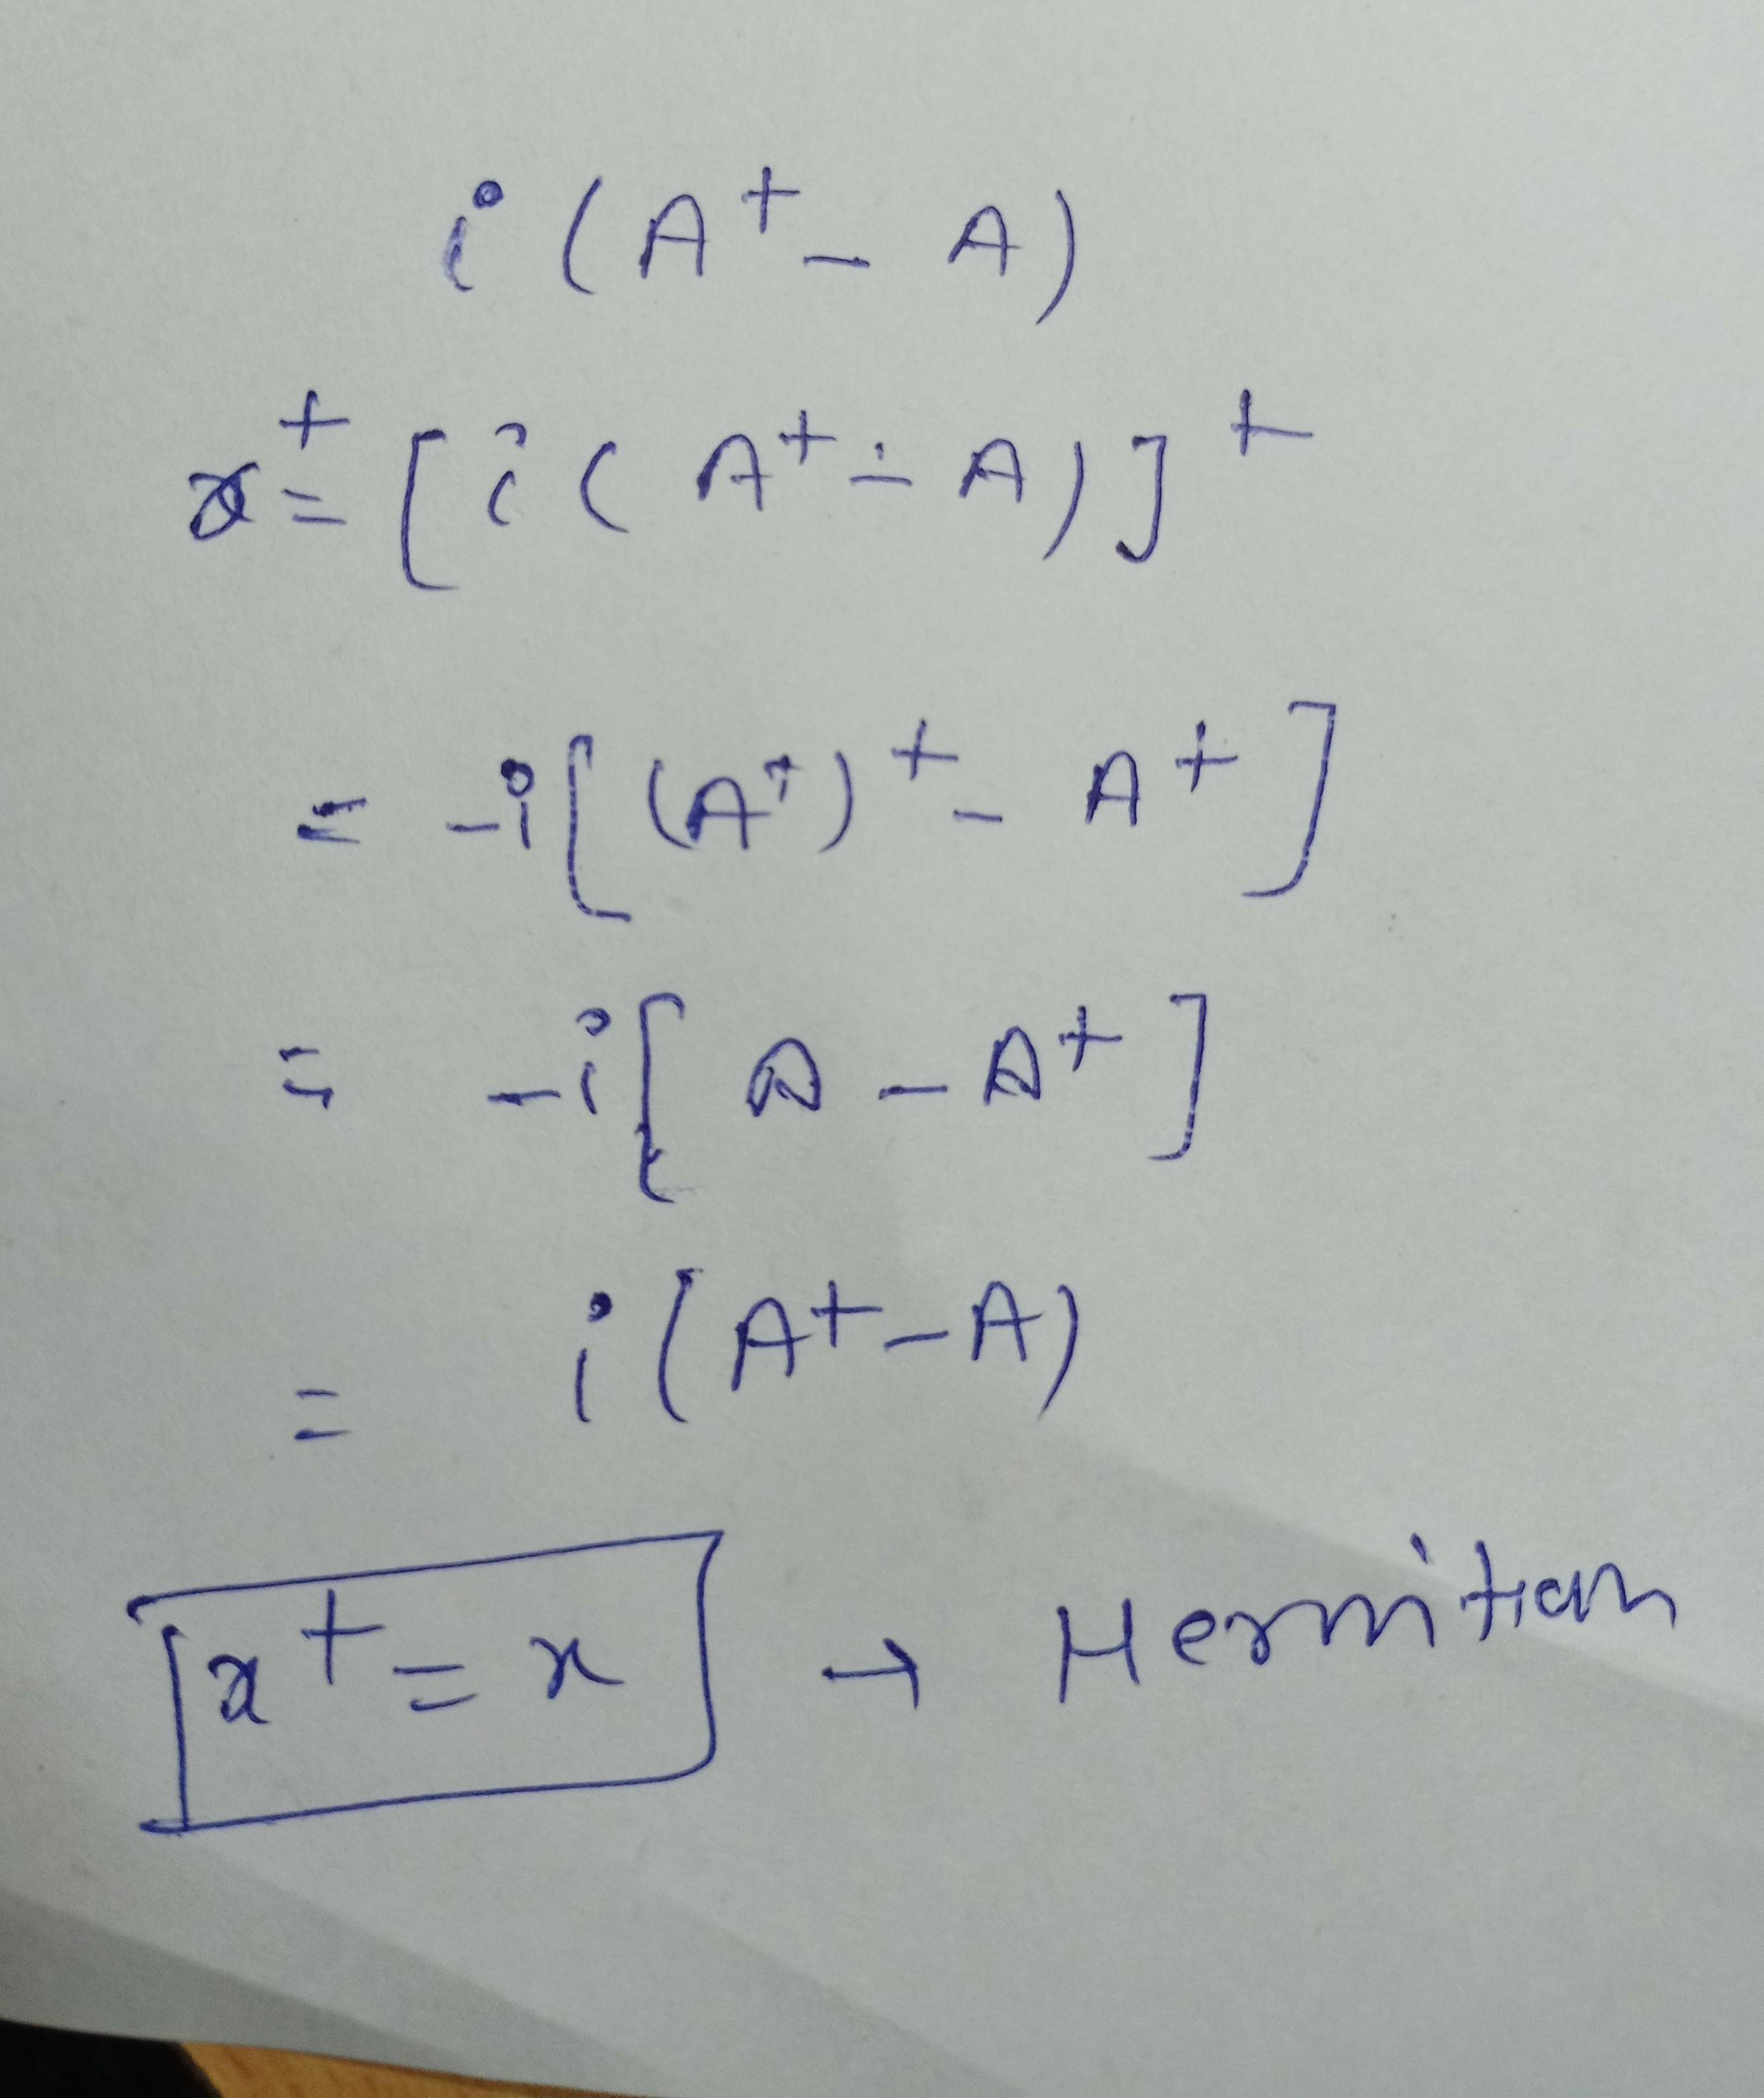 i (A⁺ - A)
x⁺ = [i (A⁺ - A)]⁺
= -i [(A⁺)⁺ - A⁺]
= -i [A - A⁺]
= i (A⁺ - A)
x⁺ = x → Hermitian